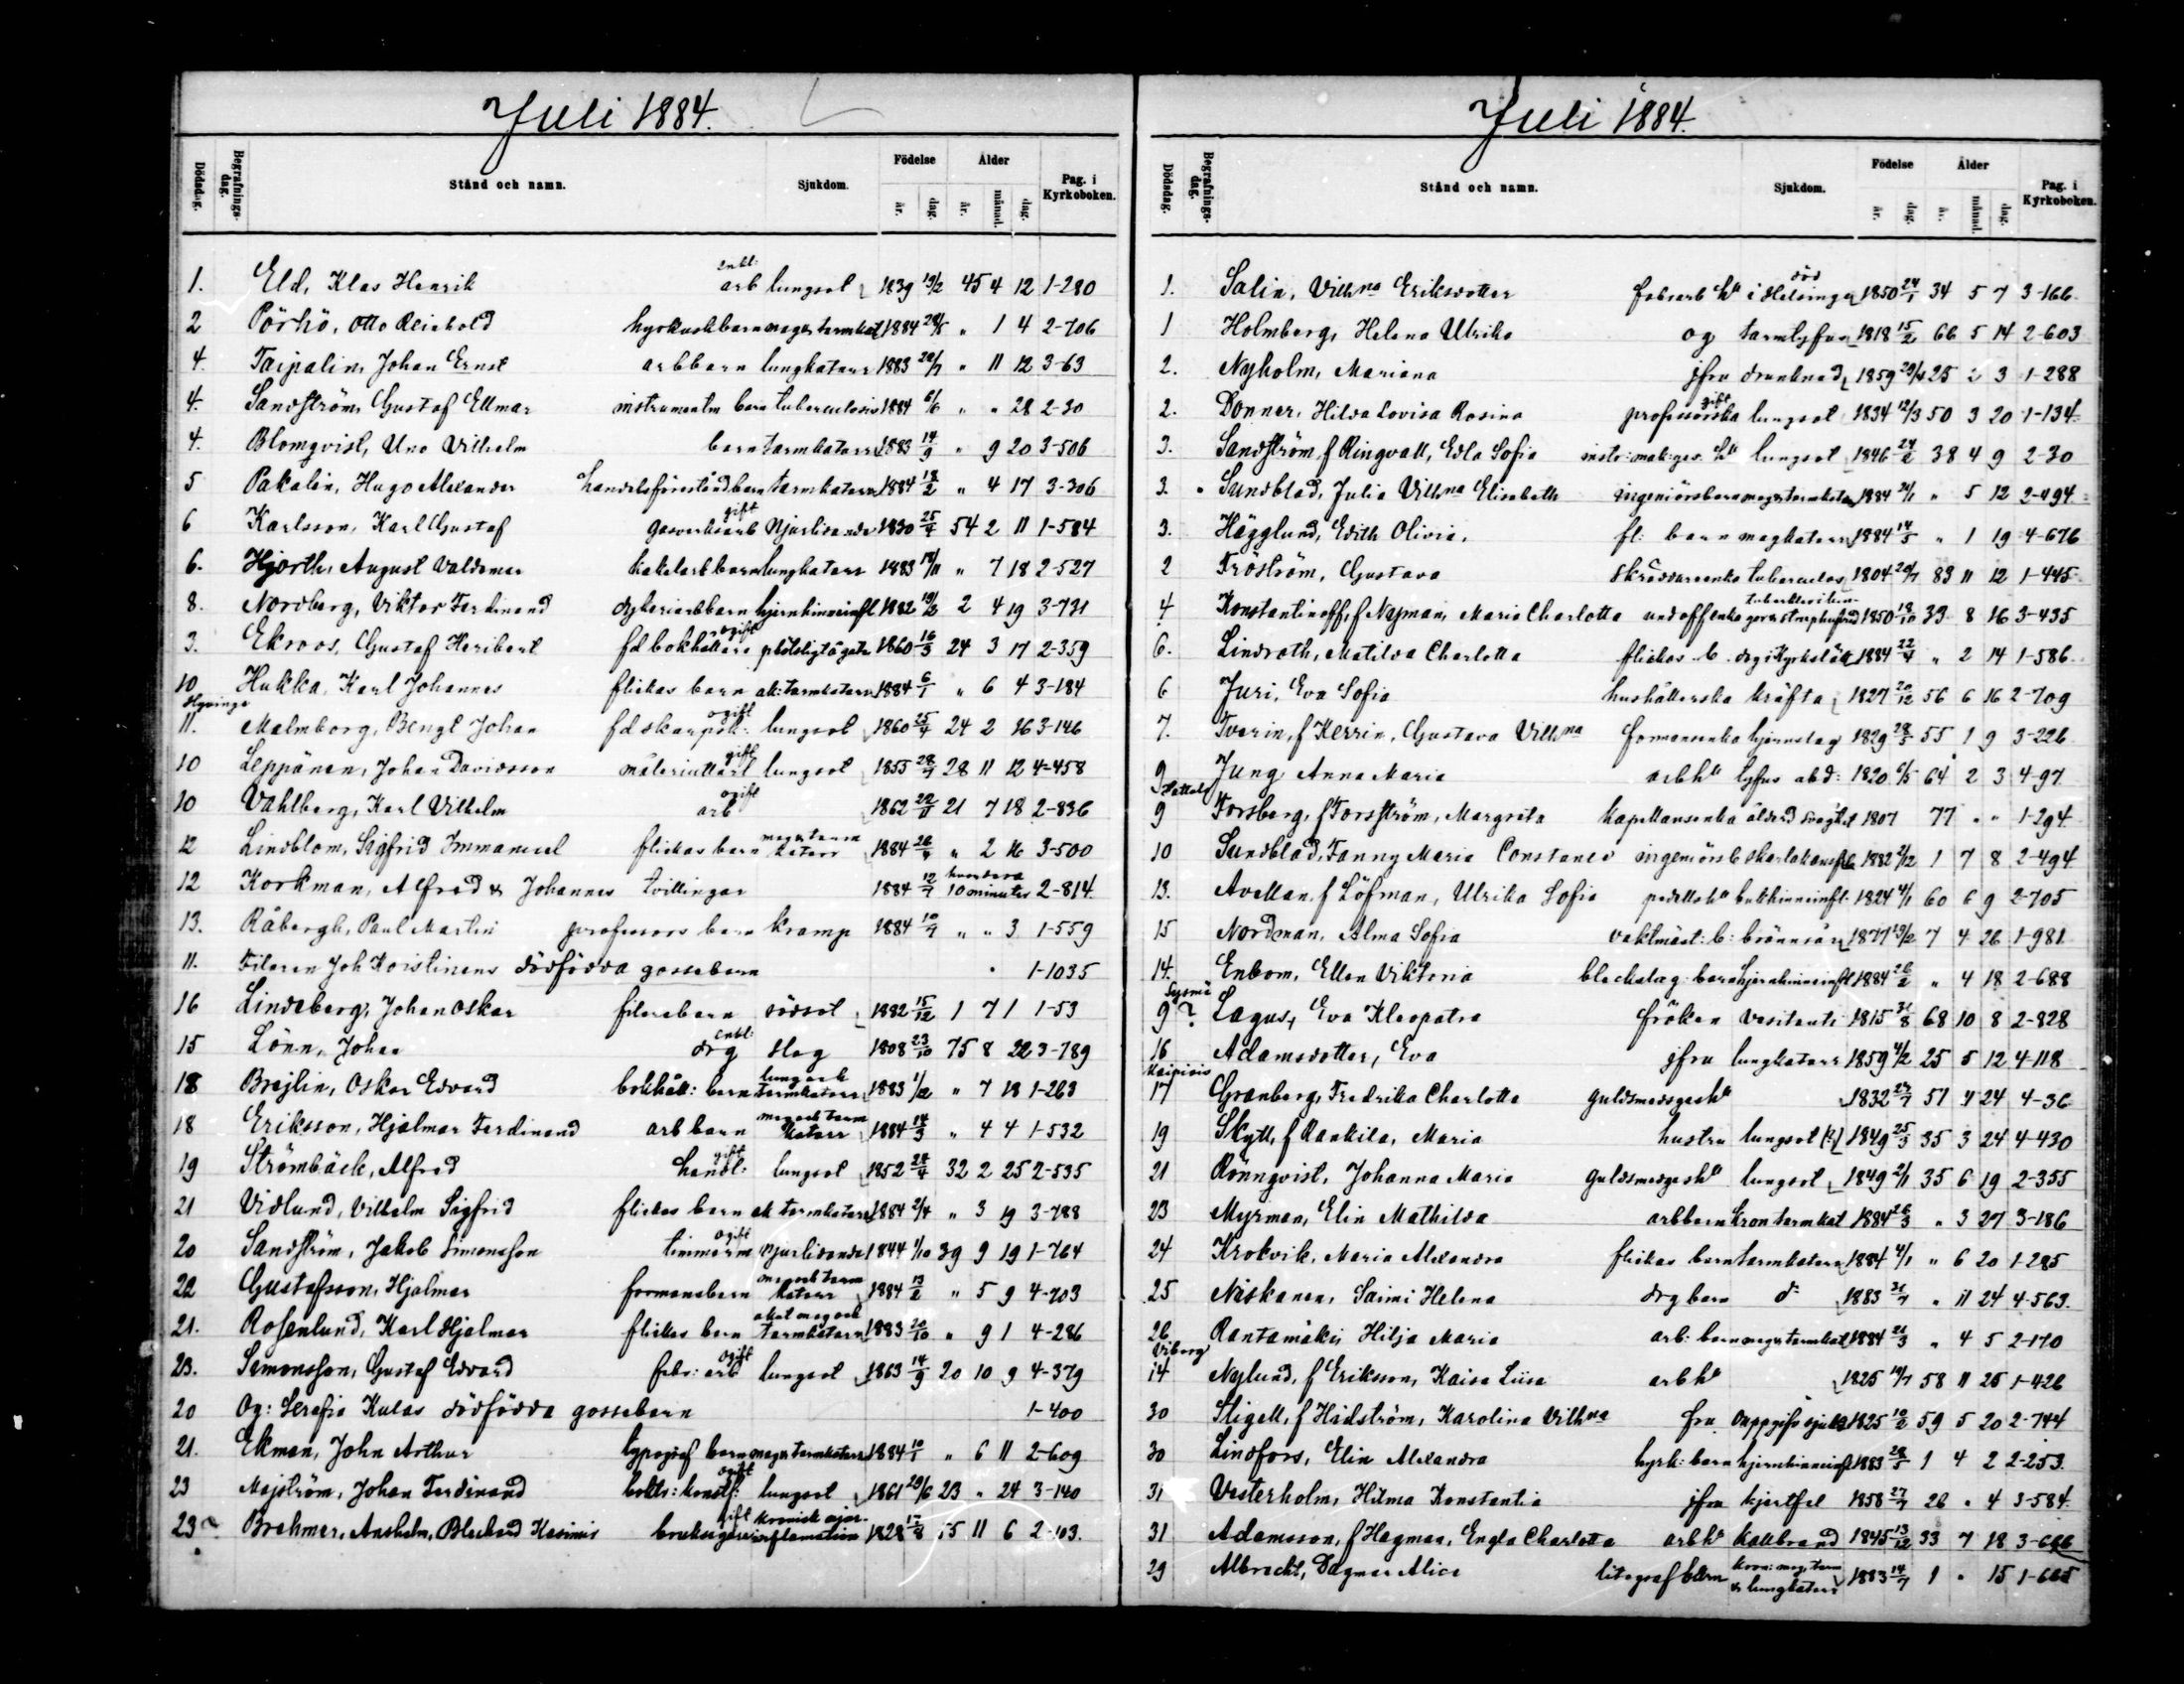 Juli 1884.
Dödsdag. Begrafnings-dag. Stånd och namn. Sjukdom. Födelse år. dag. Ålder år. månad. dag. Pag. i Kyrkoboken.
1. Eld, Klas Henrik enkl: arb lungsot 1839 19/2 45 4 12 1-280
2 Pörhö, Otto Reinhold hyrkuskbarn mag&tarmkat 1884 28/5 " 1 4 2-706
4. Taipalin, Johan Ernst arbbarn lungkatarr 1883 22/7 " 11 12 3-63
4. Sandström, Gustaf Ellmar instrumentm barn tuberculosis 1884 6/6 " " 28 2-30
4. Blomqvist, Uno Vilhelm barn tarmkatarr 1883 14/9 " 9 20 3-506
5 Pakalin, Hugo Alexander handelsföreståndbarn tarmkatarr 1884 18/2 " 4 17 3-306
6 Karlsson, Karl Gustaf gift gasverksarb Njurlidande 1830 25/4 54 2 11 1-584
6. Hjorth, August Valdemar kakelarbbarn lungkatarr 1883 18/11 " 7 18 2-527
8. Nordberg, Viktor Ferdinand drg barn hjernhinneinfl 1882 19/2 2 4 19 3-731
3. Ekroos, Gustaf Heribert ogift fd bokhållare plötsligt å gata 1860 16/3 24 3 17 2-359
10 Hukka, Karl Johannes flickas barn ak: tarmkatarr 1884 6/1 " 6 4 3-184
Hyvinge
11. Malmborg, Bengt Johan ogift fd skarpsk: lungsot 1860 25/4 24 2 16 3-146
10 Leppänen, Johan Davidsson gift lungsot 1855 28/7 28 11 12 4-458
10 Vahlberg, Karl Vilhelm ogift arb 1862 22/11 21 7 18 2-836
12 Lindblom, Sigfrid Immanuel flickas barn mag&tarm katarr 1884 26/4 " 2 16 3-500
12 Korkman, Alfred & Johannes tvillingar 1884 12/7 hvardera 10 minuter 2-814.
13. Råbergh, Paul Martin professors barn kramp 1884 10/7 " " 3 1-559
11. Filaren Joh Koistinens dödfödda gossebarn " 1-1035
16 Lindeberg, Johan Oskar filarebarn rödsot 1882 15/12 1 7 1 1-53
15 Lönn, Johan enkl: drg slag 1808 23/10 75 8 22 3-789
18 Brejlin, Oskar Edvard bokhåll: barn lung och tarmkatarr 1883 1/12 " 7 18 1-263
18 Eriksson, Hjalmar Ferdinand arb barn mag och tarm katarr 1884 14/3 " 4 4 1-532
19 Strömbäck, Alfred gift handl: lungsot 1852 24/4 32 2 25 2-535
21 Vidlund, Vilhelm Sigfrid flickas barn ak tarmkatarr 1884 2/4 " 3 19 3-788
20 Sandström, Jakob Simonsson ogift timmerm njurlidande 1844 1/10 39 9 19 1-764
22 Gustafsson, Hjalmar formansbarn mag och tarm katarr 1884 13/2 " 5 9 4-703
21. Rosenlund, Karl Hjalmar flickas barn akut mag och tarmkatarr 1883 20/10 " 9 1 4-286
23. Simonsson, Gustaf Edvard ogift fabr: arb lungsot 1863 14/9 20 10 9 4-379
20 Og: Serafia Kulas dödfödda gossebarn 1-400
21. Ekman, John Arthur typograf barn mag& tarmkatarr 1884 10/1 " 6 11 2-609
23 Majström, Johan Ferdinand ogift lungsot 1861 29/6 23 " 24 3-140
23 Brehmer, Anshelm, Kasimir gift kronisk njur-inflamation 1828 17/8 55 11 6 2-103.
Juli 1884.
Dödsdag. Begrafnings-dag. Stånd och namn. Sjukdom. Födelse år. dag. Ålder år. månad. dag. Pag. i Kyrkoboken.
1. Salin, Vilhna Eriksdotter fabrarb hu död i Helsinge 1850 24/1 34 5 7 3-166
1 Holmberg, Helena Ulrika og tarmtyfus 1818 15/2 66 5 14 2-603
2. Nyholm, Mariana jfru drunknad 1859 29/4 25 2 3 1-288
2. Donner, Hilda Lovisa Rosina gift professorska lungsot 1834 12/3 50 3 20 1-134.
3. Sandström f Ringvall, Edla Sofia instr: mak: ges. hu lungsot 1846 24/2 38 4 9 2-30
3. Sundblad, Julia Vilhna Elisabeth ingeniörsbarn mag&tarmkatar 1884 21/1 " 5 12 2-494
3. Hägglund, Edith Olivia. fl: barn magkatarr 1884 14/5 " 1 19 4-676
2 Fröström, Gustava skräddareenka tuberculos 1804 20/7 83 11 12 1-445
4. Konstantinoff, f Nyman, Maria Charlotta undoffenka 1850 18/10 33 8 16 3-435
6. Lindroth, Matilda Charlotta flickas b. drg i Kyrkslätt 1884 22/4 " 2 14 1-586.
6 Juri, Eva Sofia hushållerska kräfta 1827 20/12 56 6 16 2-709
7. Tverin, f Kerrin, Gustava Vilhna formansenka hjernslag 1829 28/5 55 1 9 3-226
9 Jung Anna Maria arbhu tyfus abd: 1820 6/5 64 2 3 4-97
9 Forsberg, f Forsström, Margreta Kapellansenka ålderd svaghet 1807 77 " " 1-294.
10 Sundblad, Fanny Maria Constance ingeniörsb skarlakansfeb 1882 2/12 1 7 8 2-494
13. Avellan, f Löfman, Ulrika Sofia pedellshu bukhinneinfl: 1824 4/1 60 6 9 2-705
15 Nordman, Alma Sofia vaktmäst: b: brännsår 1877 19/2 7 4 26 1-981
14. Enbom, Ellen Viktoria bleckslag: barn hjernhinneinfl 1884 26/2 " 4 18 2-688
Sysmä
9? Lagus, Eva Kleopatra fröken Vesitauti 1815 31/8 68 10 8 2-828
16 Adamsdotter, Eva jfru lungkatarr 1859 4/2 25 5 12 4-118
17 Granberg, Fredrika Charlotta guldsmedsgeshu 1832 24/7 51 11 24 4-36
19 Skytt, f Rankila, Maria hustru lungsot (?) 1849 25/3 35 3 24 4-430
21 Rönnqvist, Johanna Maria guldsmedgeshu lungsot 1849 2/1 35 6 19 2-355
23 Myrman, Elin Mathilda arbbarn kron tarmkat 1884 26/3 " 3 27 3-186
24 Krokvik, Maria Alexandra flickas barn tarmkatarr 1884 4/1 " 6 20 1-285
25 Niskanen, Saimi Helena drg barn d: 1883 31/7 " 11 24 4-563.
26 Rantamäki, Hilja Maria arb: barn mag&tarmkat 1884 21/3 " 4 5 2-170
Viborg
14 Nylund, f Eriksson, Kaisa Liisa arbhu 1825 19/7 58 11 25 1-426
30 Stigell, f Hidström, Karolina Vilhna fru Ouppgifv sjukd 1825 10/2 59 5 20 2-744
30 Lindfors, Elin Alexandra hyrk: barn hjernhinneinfl 1883 28/3 1 4 2 2-253.
31 Vesterholm, Hilma Konstantia jfru hjertfel 1858 27/7 26 " 4 3-584.
31 Adamsson, f Hagman, Engla Charlotta arbhu kallbrand 1845 13/12 33 7 18 3-666
29 Albrecht, Dagmar Alice litograf barn kron: mag, tarm & lungkatarr 1883 14/7 1 " 15 1-665